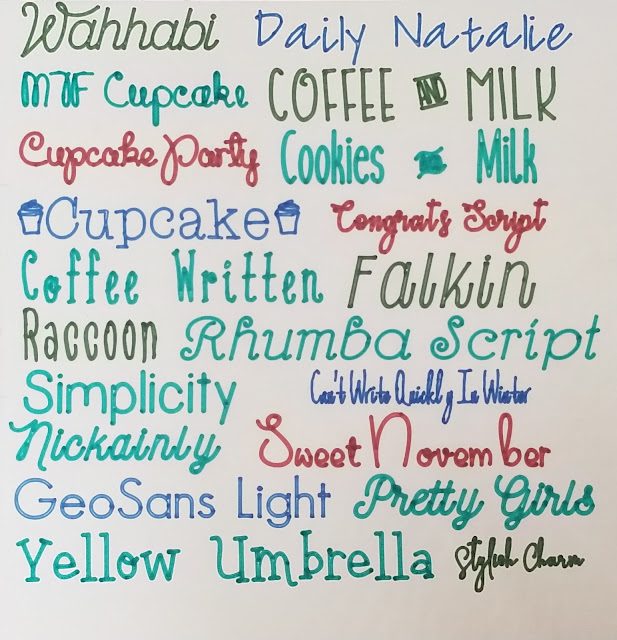 Wahhabi Daily Natalie
MTF Cupcake COFFEE AND MILK
Cupcake Party Cookies & Milk
Cupcake Congrats Script
Coffee Written Falkin
Raccoon Rhumba Script
Simplicity Can't Write Quickly In Winter
Nickainly Sweet November
GeoSans Light Pretty Girls
Yellow Umbrella Stylish Charm